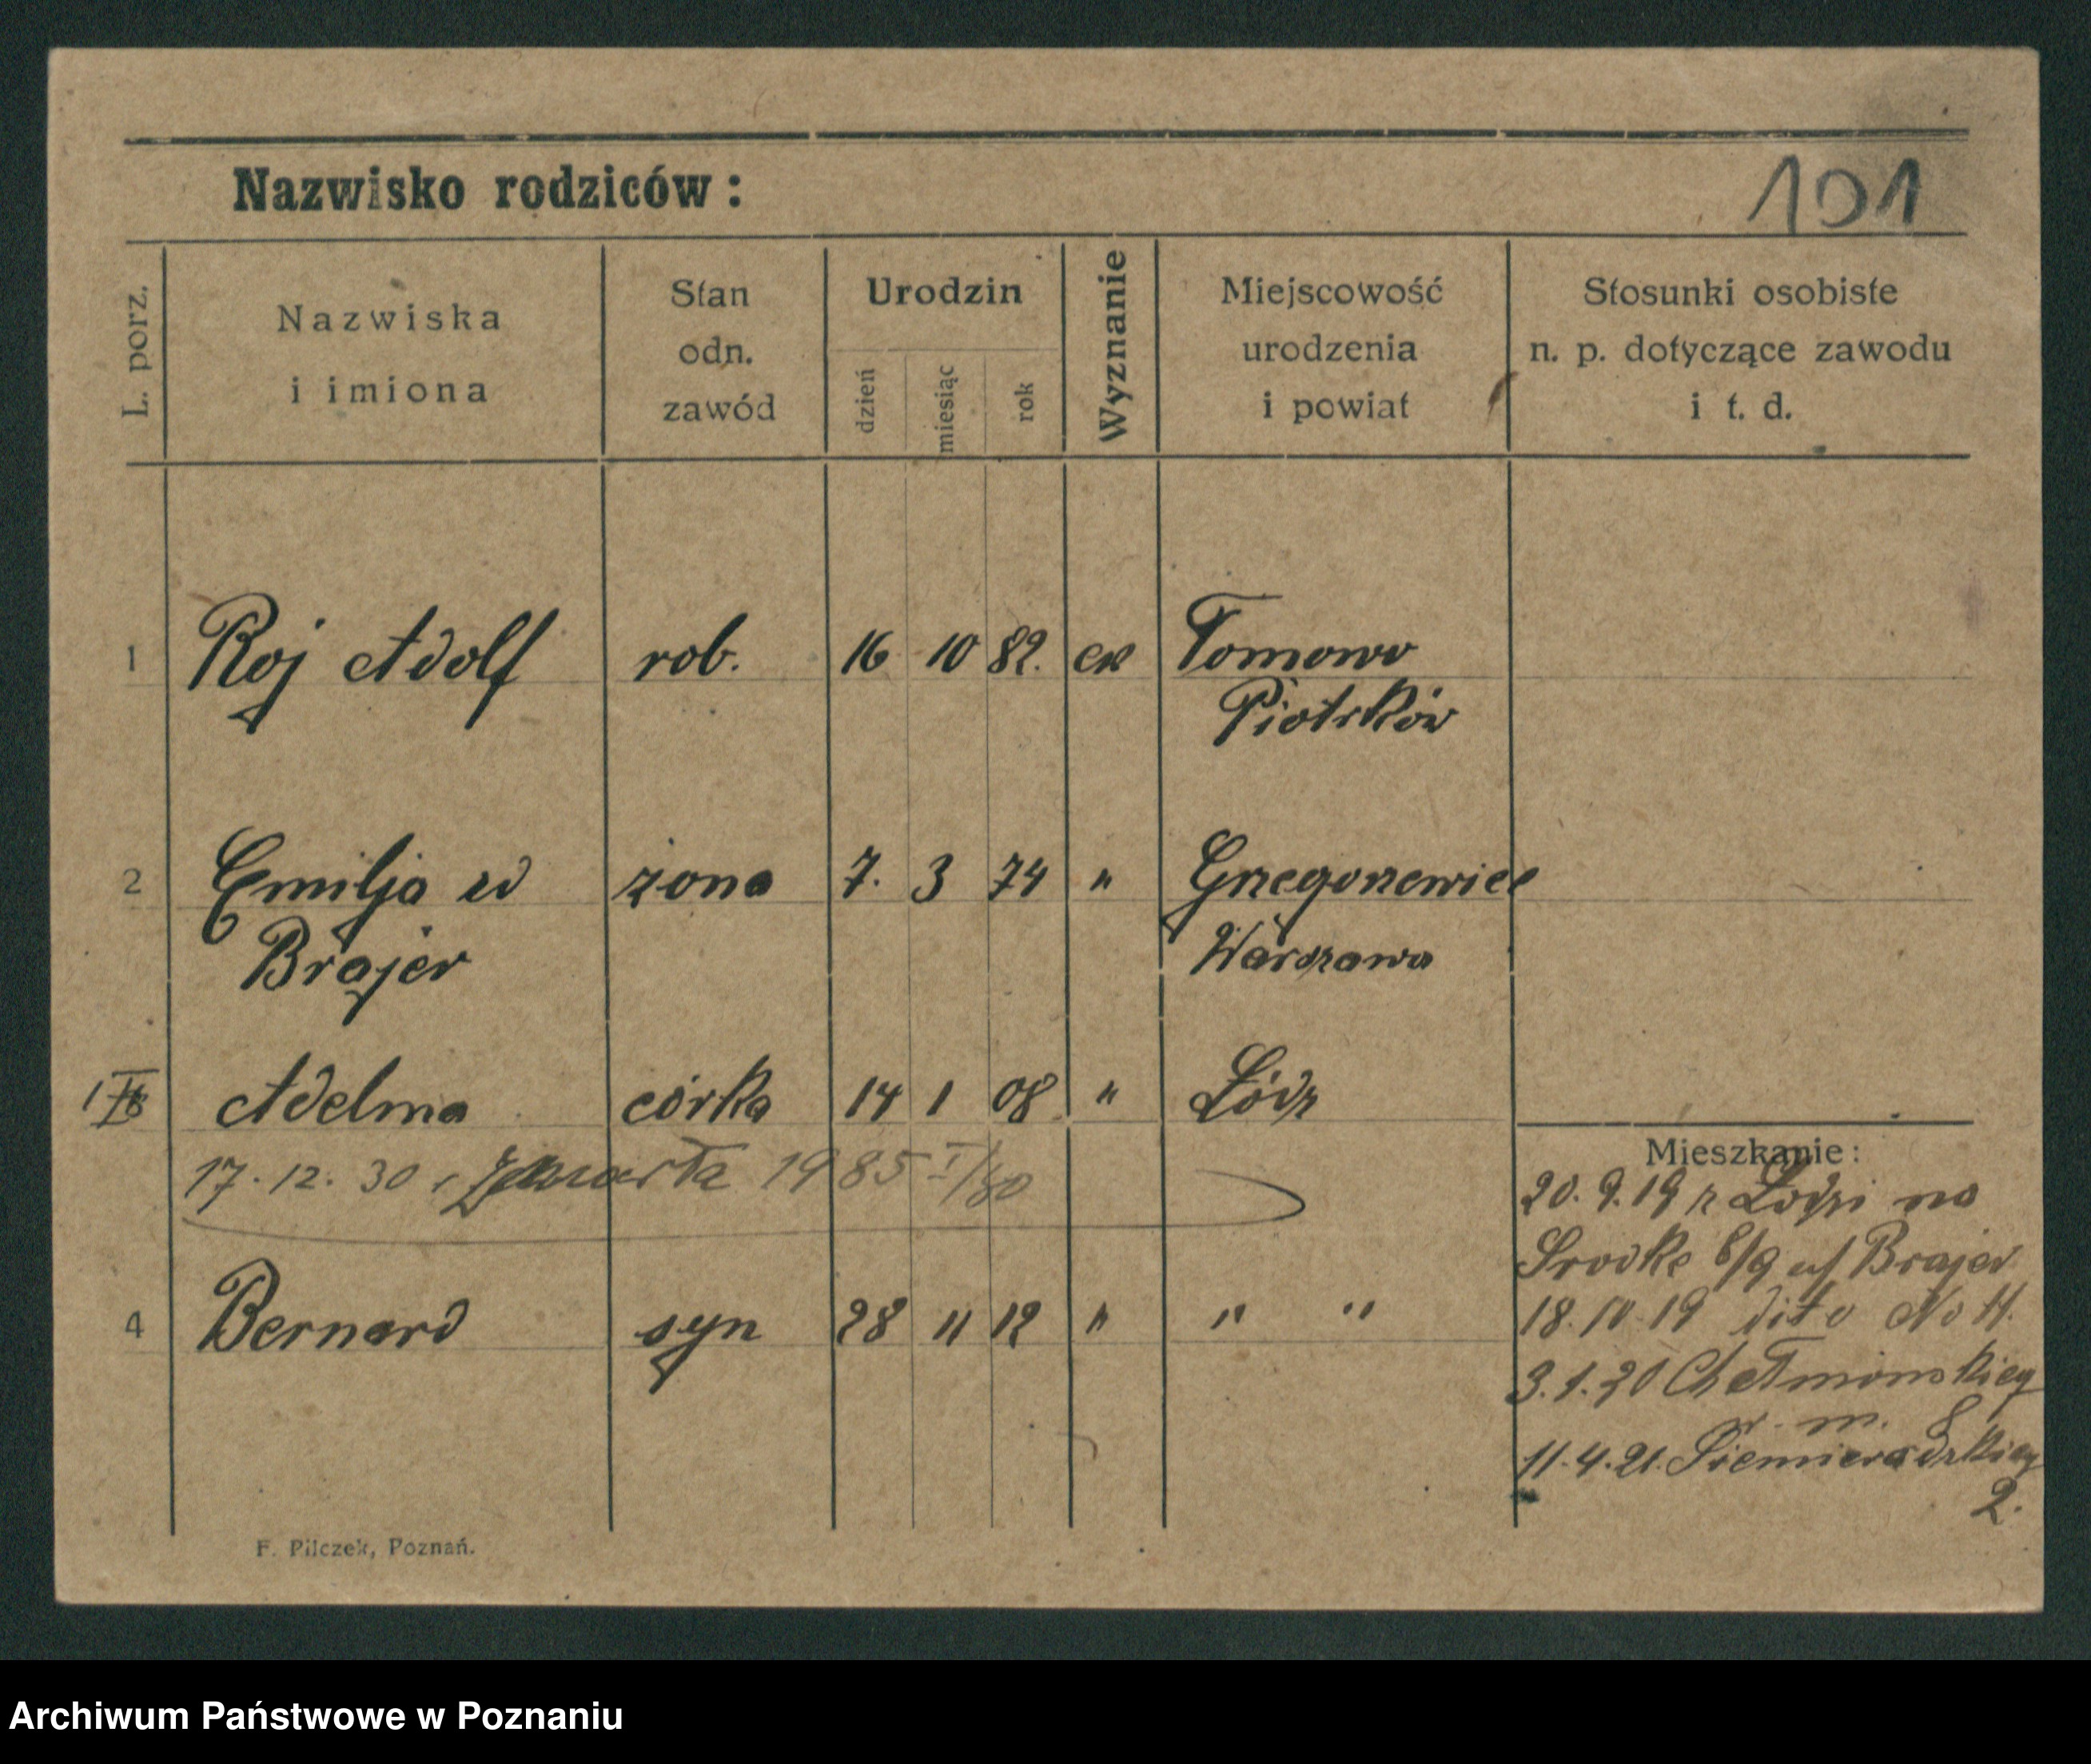 Nazwisko rodziców: 101
L. porz. Nazwiska i imiona Stan odn. zawód Urodzin dzień miesiąc rok Wyznanie Miejscowość urodzenia i powiat Stosunki osobiste n. p. dotyczące zawodu i t. d.
1 Roj Adolf rob. 16 10 82. ew Tomowo
Piotrków
2 Emilja w żona 7. 3 74 "
Brajer Warszawa
Adelma córka 14 1 08 " Łódz
17. 12. 30 1985 I/30
4 Bernard syn 28 11 12 " " "
Mieszkanie:
20. 9. 19 z Łodzi na
Srodke 8/9 u/ Brajer
18. 10 19 dito No 11.
3. 1. 20
w. m. 8
11. 4. 21. Siemieradzkieg
2.
F. Pilczek, Poznań.
Archiwum Państwowe w Poznaniu